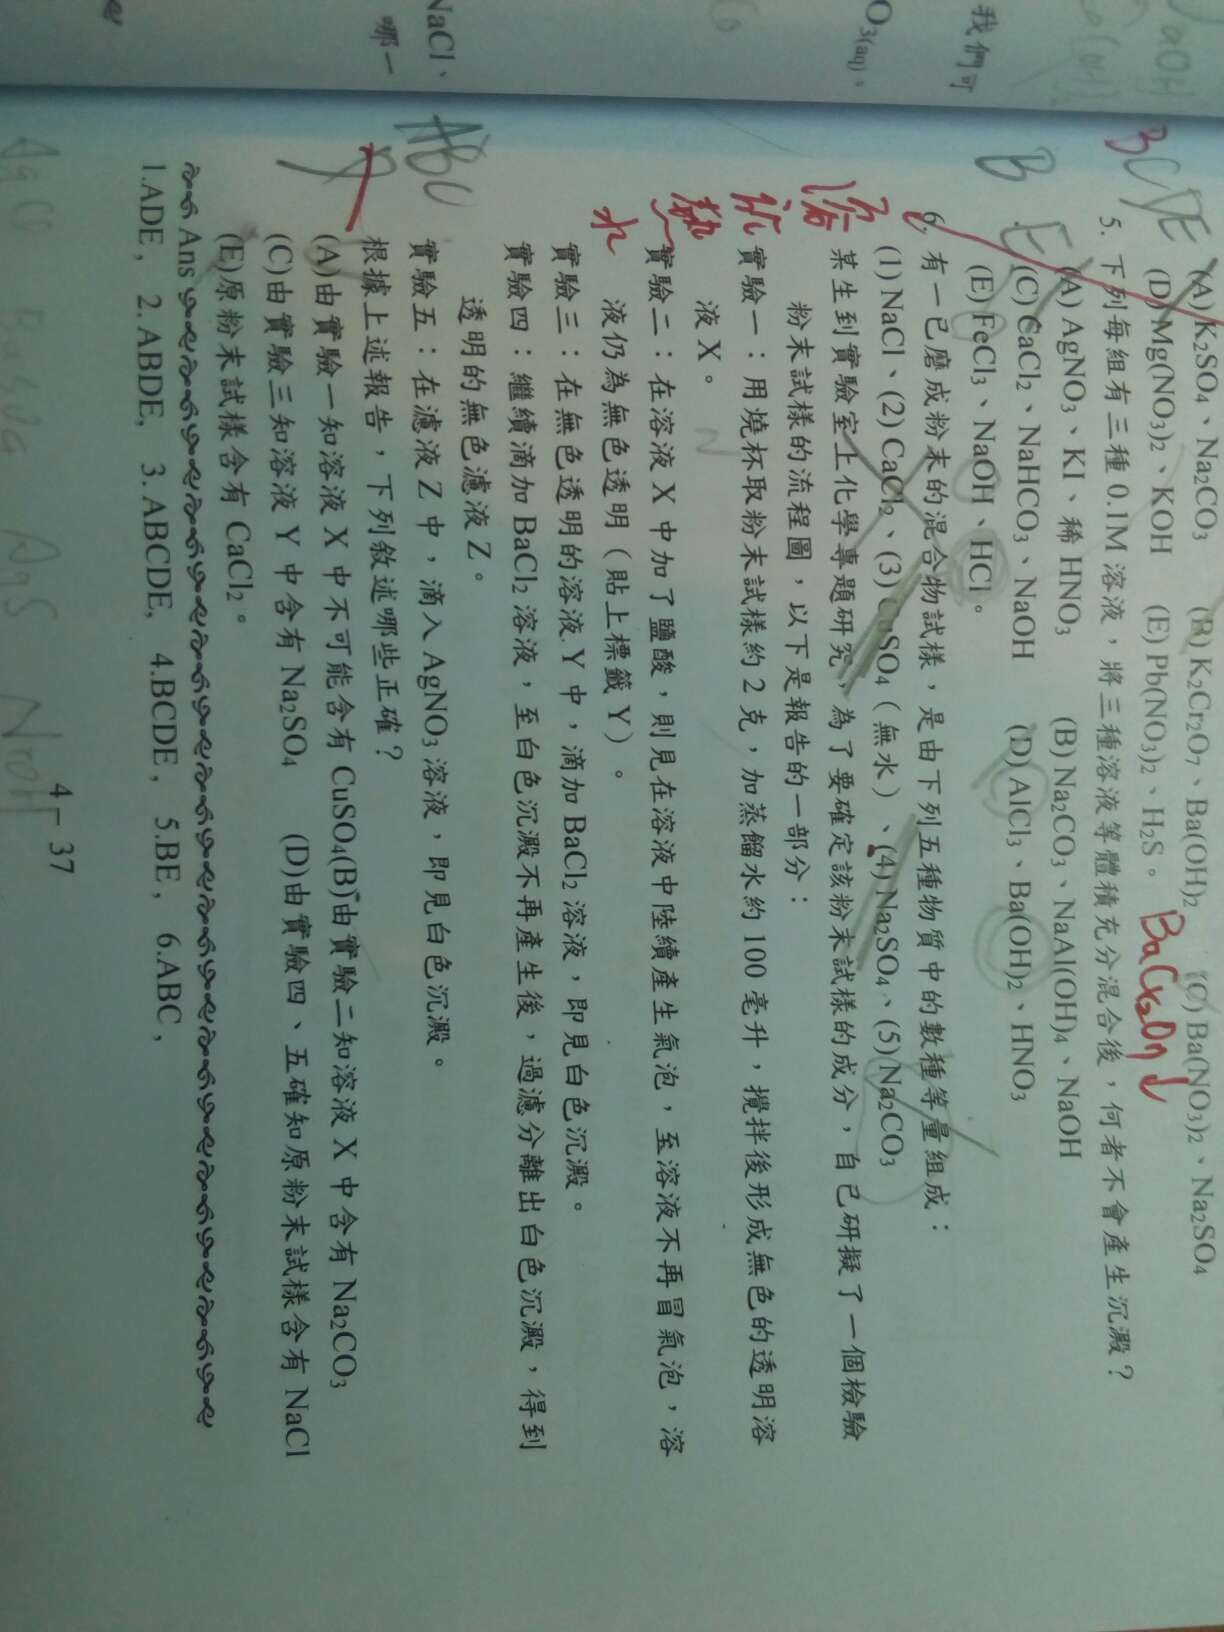 我們可
O3(aq)、
NaCl、
哪一
BCDE
(A) K2SO4、Na2CO3 (B) K2Cr2O7、Ba(OH)2 (C) Ba(NO3)2、Na2SO4
(D) Mg(NO3)2、KOH (E) Pb(NO3)2、H2S。
5. 下列每組有三種 0.1M 溶液，將三種溶液等體積充分混合後，何者不會產生沉澱？
(A) AgNO3、KI、稀 HNO3 (B) Na2CO3、NaAl(OH)4、NaOH
(C) CaCl2、NaHCO3、NaOH (D) AlCl3、Ba(OH)2、HNO3
(E) FeCl3、NaOH、HCl。
B
E
6. 有一已磨成粉末的混合物試樣，是由下列五種物質中的數種等量組成：
(1) NaCl、(2) CaCl2、(3) CuSO4（無水）、(4) Na2SO4、(5) Na2CO3
某生到實驗室上化學專題研究，為了要確定該粉末試樣的成分，自己研擬了一個檢驗
粉末試樣的流程圖，以下是報告的一部分：
實驗一：用燒杯取粉末試樣約 2 克，加蒸餾水約 100 毫升，攪拌後形成無色的透明溶
液 X。
實驗二：在溶液 X 中加了鹽酸，則見在溶液中陸續產生氣泡，至溶液不再冒氣泡，溶
液仍為無色透明（貼上標籤 Y）。
實驗三：在無色透明的溶液 Y 中，滴加 BaCl2 溶液，即見白色沉澱。
實驗四：繼續滴加 BaCl2 溶液，至白色沉澱不再產生後，過濾分離出白色沉澱，得到
透明的無色濾液 Z。
實驗五：在濾液 Z 中，滴入 AgNO3 溶液，即見白色沉澱。
根據上述報告，下列敘述哪些正確？
(A)由實驗一知溶液 X 中不可能含有 CuSO4(B)由實驗二知溶液 X 中含有 Na2CO3
(C)由實驗三知溶液 Y 中含有 Na2SO4 (D)由實驗四、五確知原粉末試樣含有 NaCl
(E)原粉末試樣含有 CaCl2。
ABC
Ans
1.ADE， 2. ABDE， 3. ABCDE， 4.BCDE， 5.BE， 6.ABC，
4－37